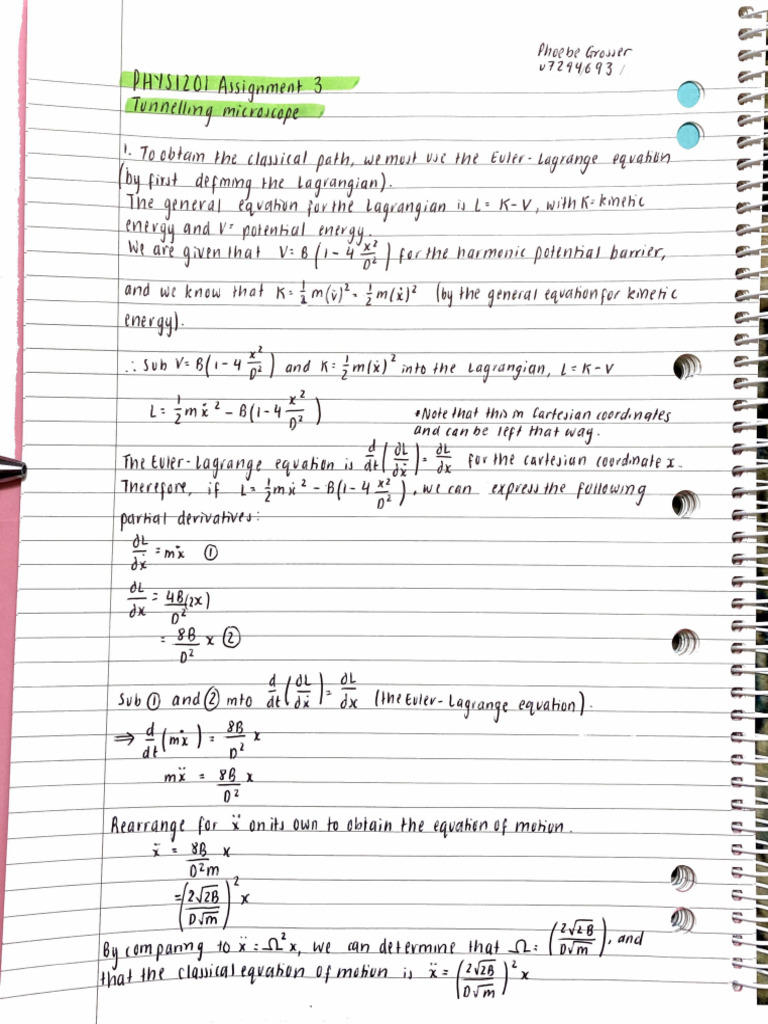 Phoebe Grosser
u7294693
PHYS1201 Assignment 3
Tunnelling microscope
1. To obtain the classical path, we must use the Euler-Lagrange equation
(by first defining the Lagrangian).
The general equation for the Lagrangian is L = K - V, with K = kinetic
energy and V = potential energy.
We are given that V = B(1 - 4 x²/D²) for the harmonic potential barrier,
and we know that K = 1/2 m(v)² = 1/2 m(ẋ)² (by the general equation for kinetic
energy).
∴ Sub V = B(1 - 4 x²/D²) and K = 1/2 m(ẋ)² into the Lagrangian, L = K - V
L = 1/2 mẋ² - B(1 - 4 x²/D²)
• Note that this in Cartesian coordinates
and can be left that way.
The Euler-Lagrange equation is d/dt(∂L/∂ẋ) = ∂L/∂x for the cartesian coordinate x.
Therefore, if L = 1/2 mẋ² - B(1 - 4 x²/D²), we can express the following
partial derivatives:
∂L/∂ẋ = mẋ ①
∂L/∂x = 4B(2x)/D²
= 8B/D² x ②
Sub ① and ② into d/dt(∂L/∂ẋ) = ∂L/∂x (the Euler-Lagrange equation).
⇒ d/dt(mẋ) = 8B/D² x
mẍ = 8B/D² x
Rearrange for ẍ on its own to obtain the equation of motion.
ẍ = 8B/D²m x
= (2√2B/D√m)² x
By comparing to ẍ = Ω²x, we can determine that Ω = (2√2B/D√m), and
that the classical equation of motion is ẍ = (2√2B/D√m)² x